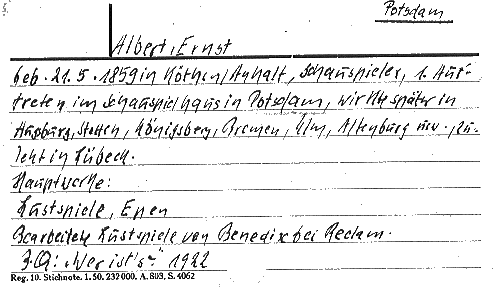 Potsdam
Albert, Ernst
geb. 21.5.1859 in Köthen/Anhalt, Schauspieler, 1. Auf-
treten im Schauspielhaus in Potsdam, wirkte später in
Augsburg, Stettin, Königsberg, Bremen, Ulm, Altenburg usw., zu-
letzt in Lübeck.
Hauptwerke:
Lustspiele, Epen
Bearbeitete Lustspiele von Benedix bei Reclam.
B.Q.: "Wer ist's" 1922
Reg. 10. Stichnote. 1. 50. 232000. A. 803. S. 4062